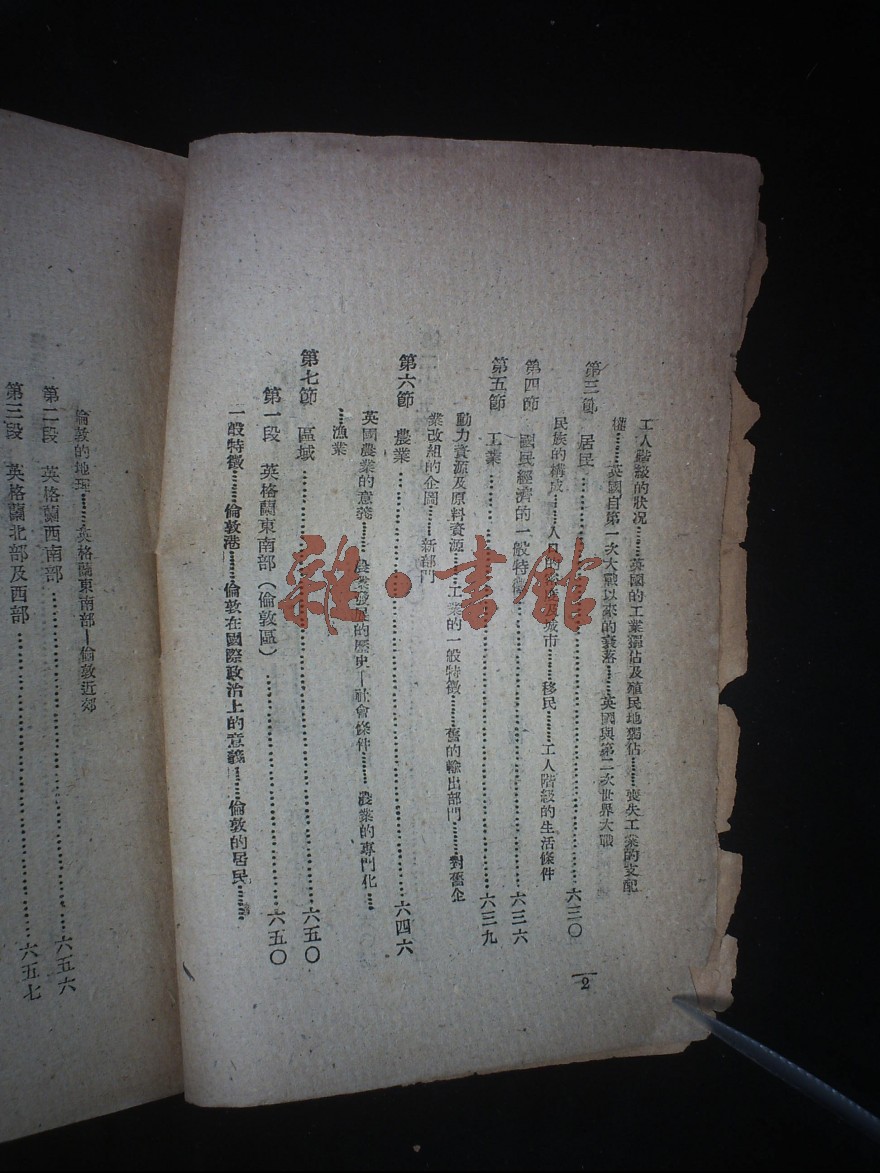 工人階級的狀況……英國的工業獨佔及殖民地獨佔……喪失工業的支配
權……英國自第一次大戰以來的衰落……英國與第二次世界大戰
第三節　居民……六三〇
民族的構成……人口的及城市……移民……工人階級的生活條件
第四節　國民經濟的一般特徵……六三六
第五節　工業……六三九
動力資源及原料資源……工業的一般特徵……舊的輸出部門……對舊企
業改組的企圖……新部門
第六節　農業……六四六
英國農業的意義……農業發展的歷史—社會條件……農業的專門化……
……漁業
第七節　區域……六五〇
第一段　英格蘭東南部（倫敦區）……六五〇
一般特徵……倫敦港……倫敦在國際政治上的意義……倫敦的居民……
2
倫敦的地理……英格蘭東南部—倫敦近郊
第二段　英格蘭西南部……六五六
第三段　英格蘭北部及西部……六五七
雜·書館